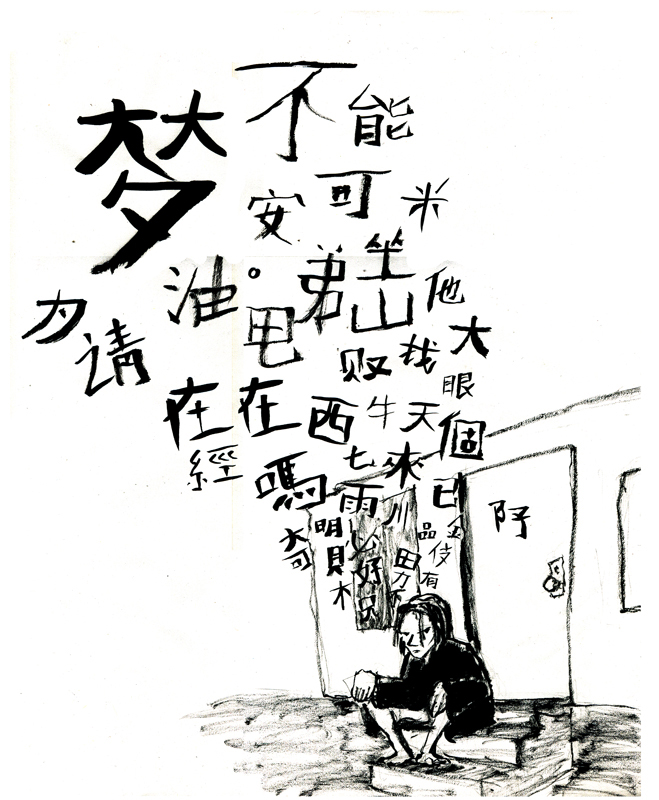 梦
不能
安可米
油。弟坐他
电山大
请败找眼
在在西牛天個
經嗎七來已
雨川品金
奇明必田伎
貝好力有
木只不